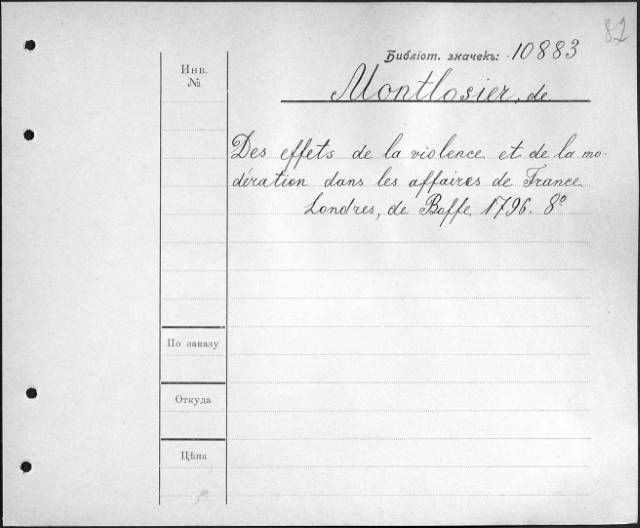 82
Библіот. значекъ: 10883
Инв.
№
Montlosier, de
Des effets de la violence et de la mo-
dération dans les affaires de France
Londres, de Boffe 1796. 8º
По заказу
Откуда
Цѣна